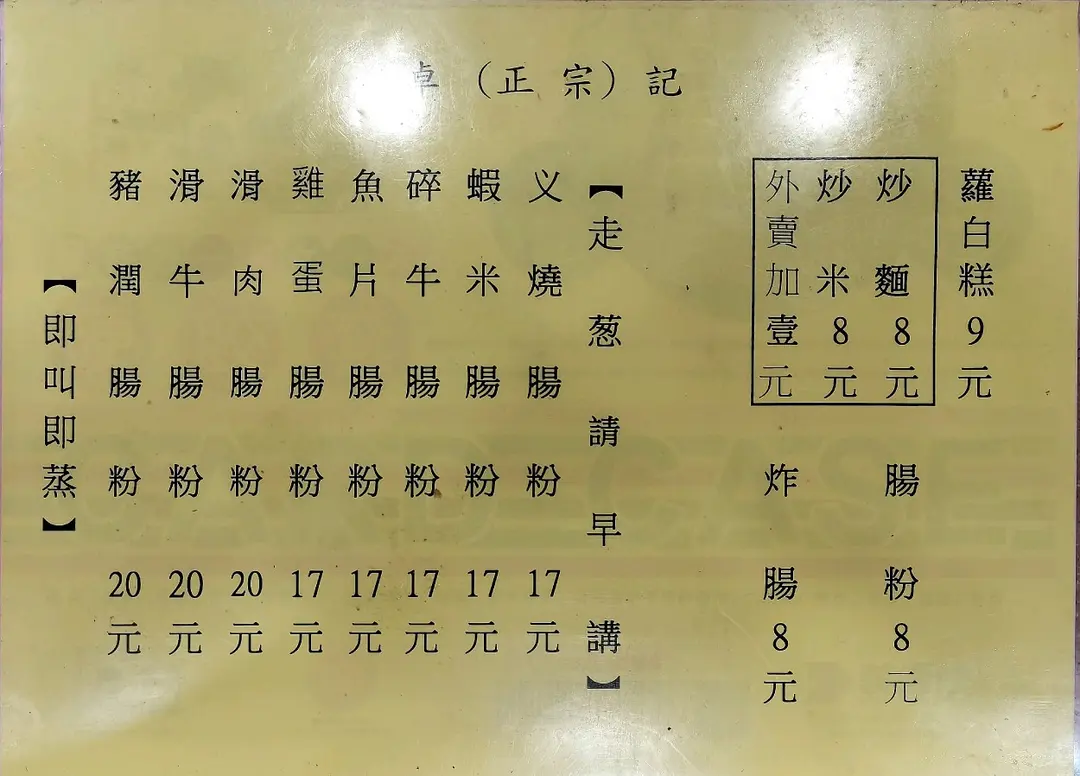 卓（正宗）記
蘿白糕9元
炒麵8元
炒米8元
外賣加壹元
腸粉8元
炸腸8元
【走葱請早講】
义燒腸粉17元
蝦米腸粉17元
碎牛腸粉17元
魚片腸粉17元
雞蛋腸粉17元
滑肉腸粉20元
滑牛腸粉20元
豬潤腸粉20元
【即叫即蒸】